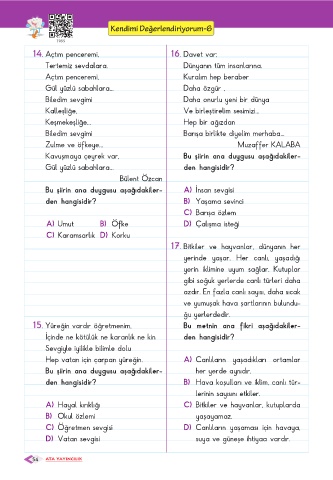 Kendimi Değerlendiriyorum-6
14. Açtım penceremi,
Tertemiz sevdalara,
Açtım penceremi,
Gül yüzlü sabahlara...
Biledim sevgimi
Kalleşliğe,
Keşmekeşliğe...
Biledim sevgimi
Zulme ve öfkeye...
Kavuşmaya çeyrek var,
Gül yüzlü sabahlara...
Bülent Özcan
Bu şiirin ana duygusu aşağıdakiler-
den hangisidir?
A) Umut B) Öfke
C) Karamsarlık D) Korku
15. Yüreğin vardır öğretmenim,
İçinde ne kötülük ne karanlık ne kin.
Sevgiyle iyilikle bilimle dolu
Hep vatan için çarpan yüreğin.
Bu şiirin ana duygusu aşağıdakiler-
den hangisidir?
A) Hayal kırıklığı
B) Okul özlemi
C) Öğretmen sevgisi
D) Vatan sevgisi
16. Davet var;
Dünyanın tüm insanlarına.
Kuralım hep beraber
Daha özgür ,
Daha onurlu yeni bir dünya
Ve birleştirelim sesimizi...
Hep bir ağızdan
Barışa birlikte diyelim merhaba...
Muzaffer KALABA
Bu şiirin ana duygusu aşağıdakiler-
den hangisidir?
A) İnsan sevgisi
B) Yaşama sevinci
C) Barışa özlem
D) Çalışma isteği
17. Bitkiler ve hayvanlar, dünyanın her
yerinde yaşar. Her canlı, yaşadığı
yerin iklimine uyum sağlar. Kutuplar
gibi soğuk yerlerde canlı türleri daha
azdır. En fazla canlı sayısı, daha sıcak
ve yumuşak hava şartlarının bulundu-
ğu yerlerdedir.
Bu metnin ana fikri aşağıdakiler-
den hangisidir?
A) Canlıların yaşadıkları ortamlar
her yerde aynıdır.
B) Hava koşulları ve iklim, canlı tür-
lerinin sayısını etkiler.
C) Bitkiler ve hayvanlar, kutuplarda
yaşayamaz.
D) Canlıların yaşaması için havaya,
suya ve güneşe ihtiyacı vardır.
ATA YAYINCILIK